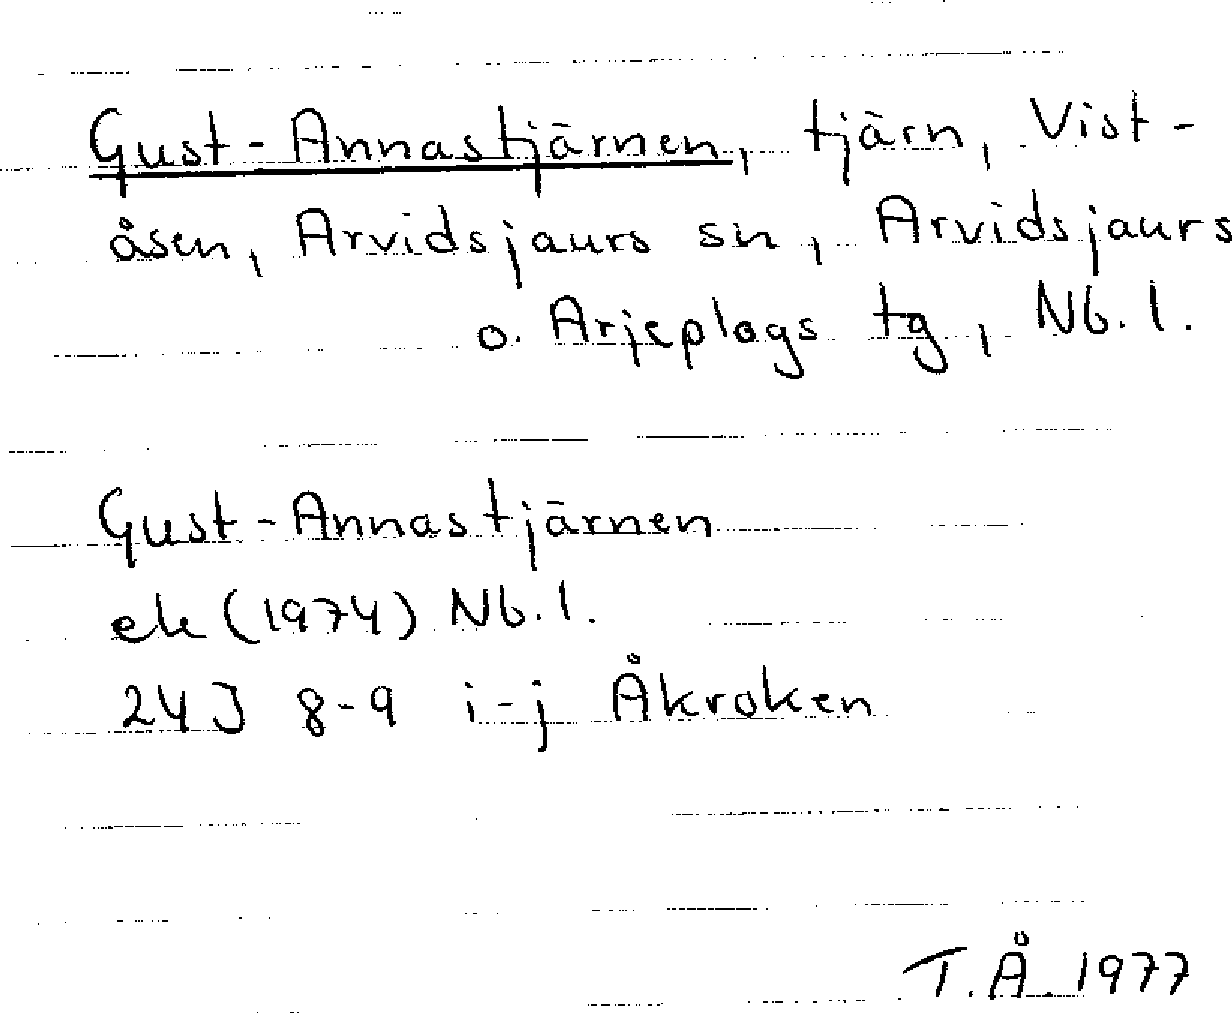 Gust-Annastjärnen, tjärn, Vist-
åsen, Arvidsjaurs sn, Arvidsjaurs
o. Arjeplogs tg, Nb. l.
Gust-Annastjärnen
ek (1974) Nb. l.
24J 8-9 i-j Åkroken
T.Å. 1977